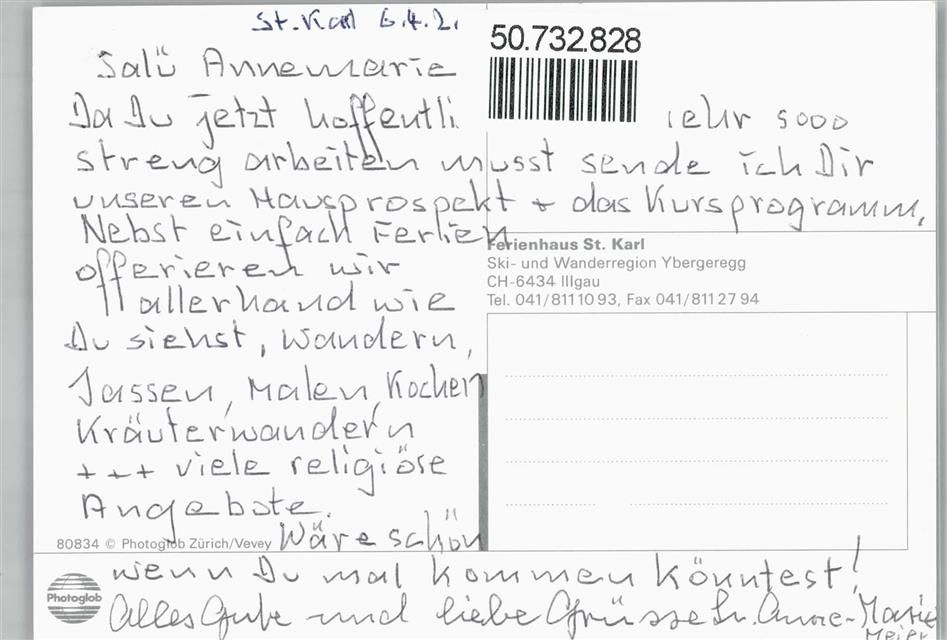 St. Karl 6.4.2.
50.732.828
Salü Annemarie
Da Du jetzt hoffentli iehr sooo
streng arbeiten musst sende ich Dir
unseren Hausprospekt + das Kursprogramm,
Nebst einfach Ferien
offerieren wir
allerhand wie
Du siehst, wandern,
Jassen, Malen, Kochen
Kräuterwandern
+ + + viele religiöse
Angebote.
Wäre schön
wenn Du mal kommen könntest!
Alles Gute und liebe Grüsse Sr. Anne-Marie
Meier
Ferienhaus St. Karl
Ski- und Wanderregion Ybergeregg
CH-6434 Illgau
Tel. 041/811 10 93, Fax 041/811 27 94
80834 © Photoglob Zürich/Vevey
Photoglob